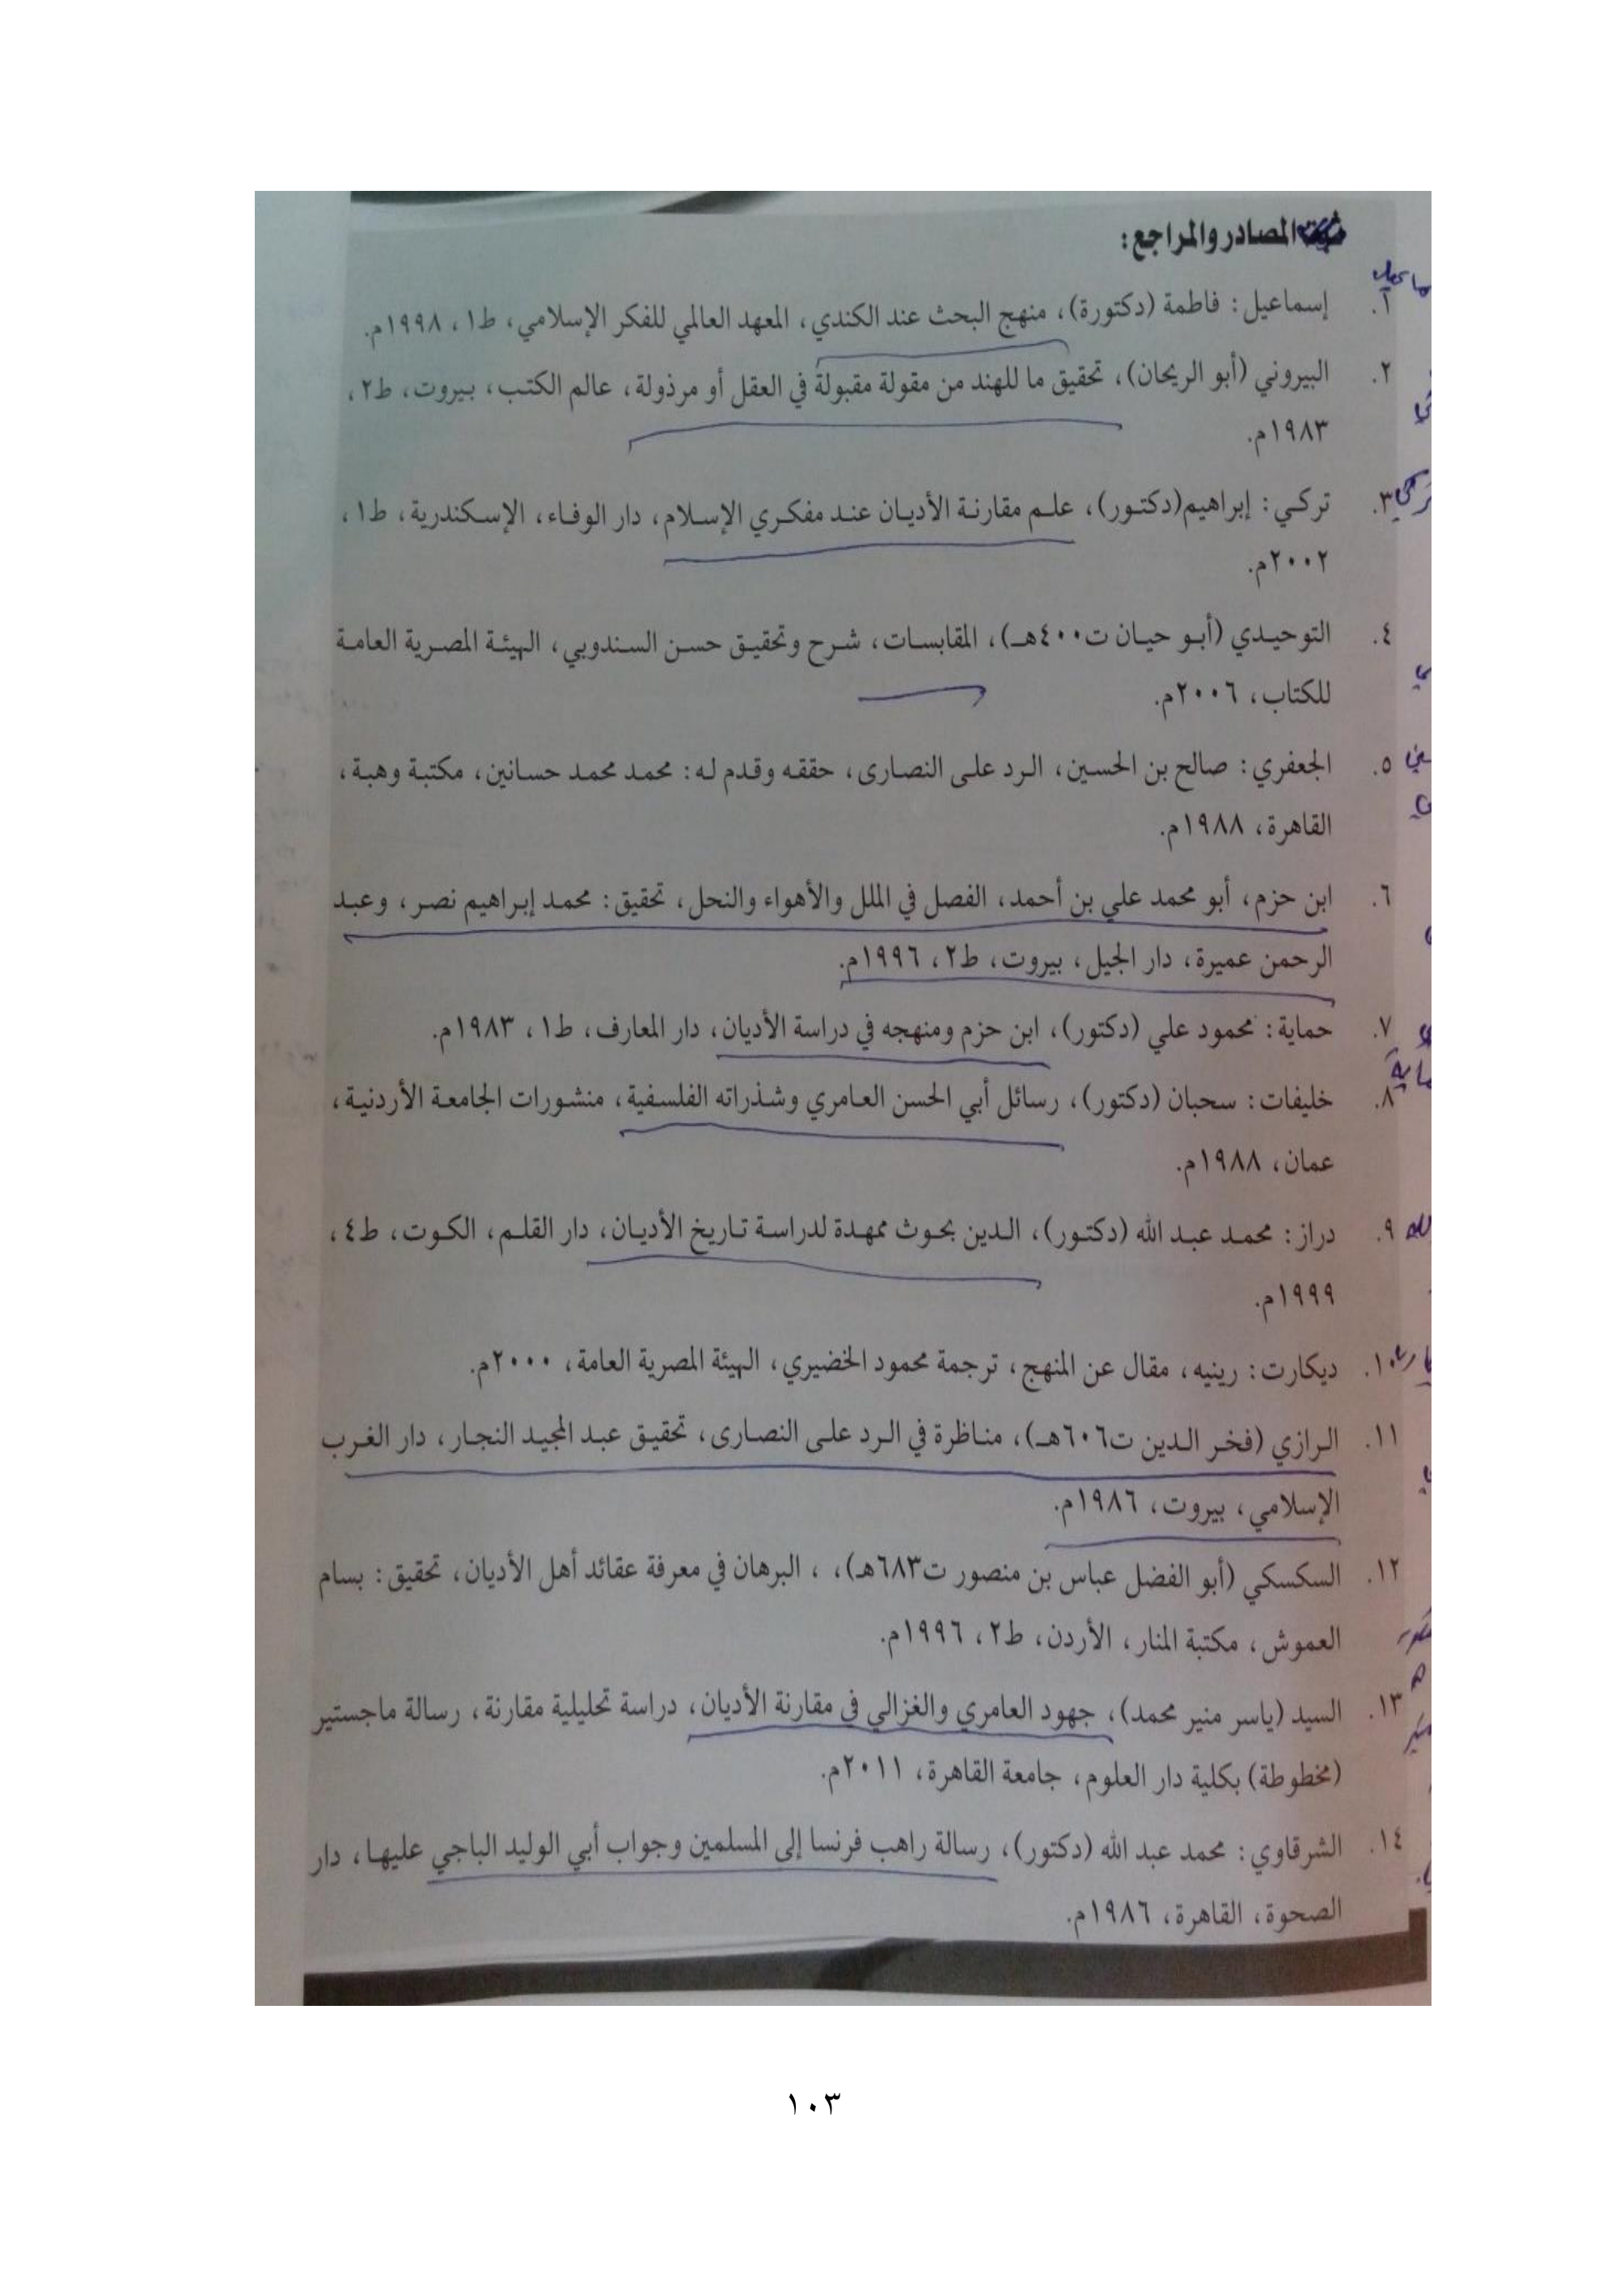 المصادر والمراجع:
١. إسماعيل: فاطمة (دكتورة)، منهج البحث عند الكندي، المعهد العالمي للفكر الإسلامي، ط١، ١٩٩٨م.
٢. البيروني (أبو الريحان)، تحقيق ما للهند من مقولة مقبولة في العقل أو مرذولة، عالم الكتب، بيروت، ط٢،
١٩٨٣م.
٣. تركي: إبراهيم(دكتور)، علم مقارنة الأديان عند مفكري الإسلام، دار الوفاء، الإسكندرية، ط١،
٢٠٠٢م.
٤. التوحيدي (أبو حيان ت٤٠٠هـ)، المقابسات، شرح وتحقيق حسن السندوبي، الهيئة المصرية العامة
للكتاب، ٢٠٠٦م.
٥. الجعفري: صالح بن الحسين، الرد على النصارى، حققه وقدم له: محمد محمد حسانين، مكتبة وهبة،
القاهرة، ١٩٨٨م.
٦. ابن حزم، أبو محمد علي بن أحمد، الفصل في الملل والأهواء والنحل، تحقيق: محمد إبراهيم نصر، وعبد
الرحمن عميرة، دار الجيل، بيروت، ط٢، ١٩٩٦م.
٧. حماية: محمود علي (دكتور)، ابن حزم ومنهجه في دراسة الأديان، دار المعارف، ط١، ١٩٨٣م.
٨. خليفات: سحبان (دكتور)، رسائل أبي الحسن العامري وشذراته الفلسفية، منشورات الجامعة الأردنية،
عمان، ١٩٨٨م.
٩. دراز: محمد عبد الله (دكتور)، الدين بحوث ممهدة لدراسة تاريخ الأديان، دار القلم، الكوت، ط٤،
١٩٩٩م.
١٠. ديكارت: رينيه، مقال عن المنهج، ترجمة محمود الخضيري، الهيئة المصرية العامة، ٢٠٠٠م.
١١. الرازي (فخر الدين ت٦٠٦هـ)، مناظرة في الرد على النصارى، تحقيق عبد المجيد النجار، دار الغرب
الإسلامي، بيروت، ١٩٨٦م.
١٢. السكسكي (أبو الفضل عباس بن منصور ت٦٨٣هـ)، ، البرهان في معرفة عقائد أهل الأديان، تحقيق: بسام
العموش، مكتبة المنار، الأردن، ط٢، ١٩٩٦م.
١٣. السيد (ياسر منير محمد)، جهود العامري والغزالي في مقارنة الأديان، دراسة تحليلية مقارنة، رسالة ماجستير
(مخطوطة) بكلية دار العلوم، جامعة القاهرة، ٢٠١١م.
١٤. الشرقاوي: محمد عبد الله (دكتور)، رسالة راهب فرنسا إلى المسلمين وجواب أبي الوليد الباجي عليها، دار
الصحوة، القاهرة، ١٩٨٦م.
١٠٣